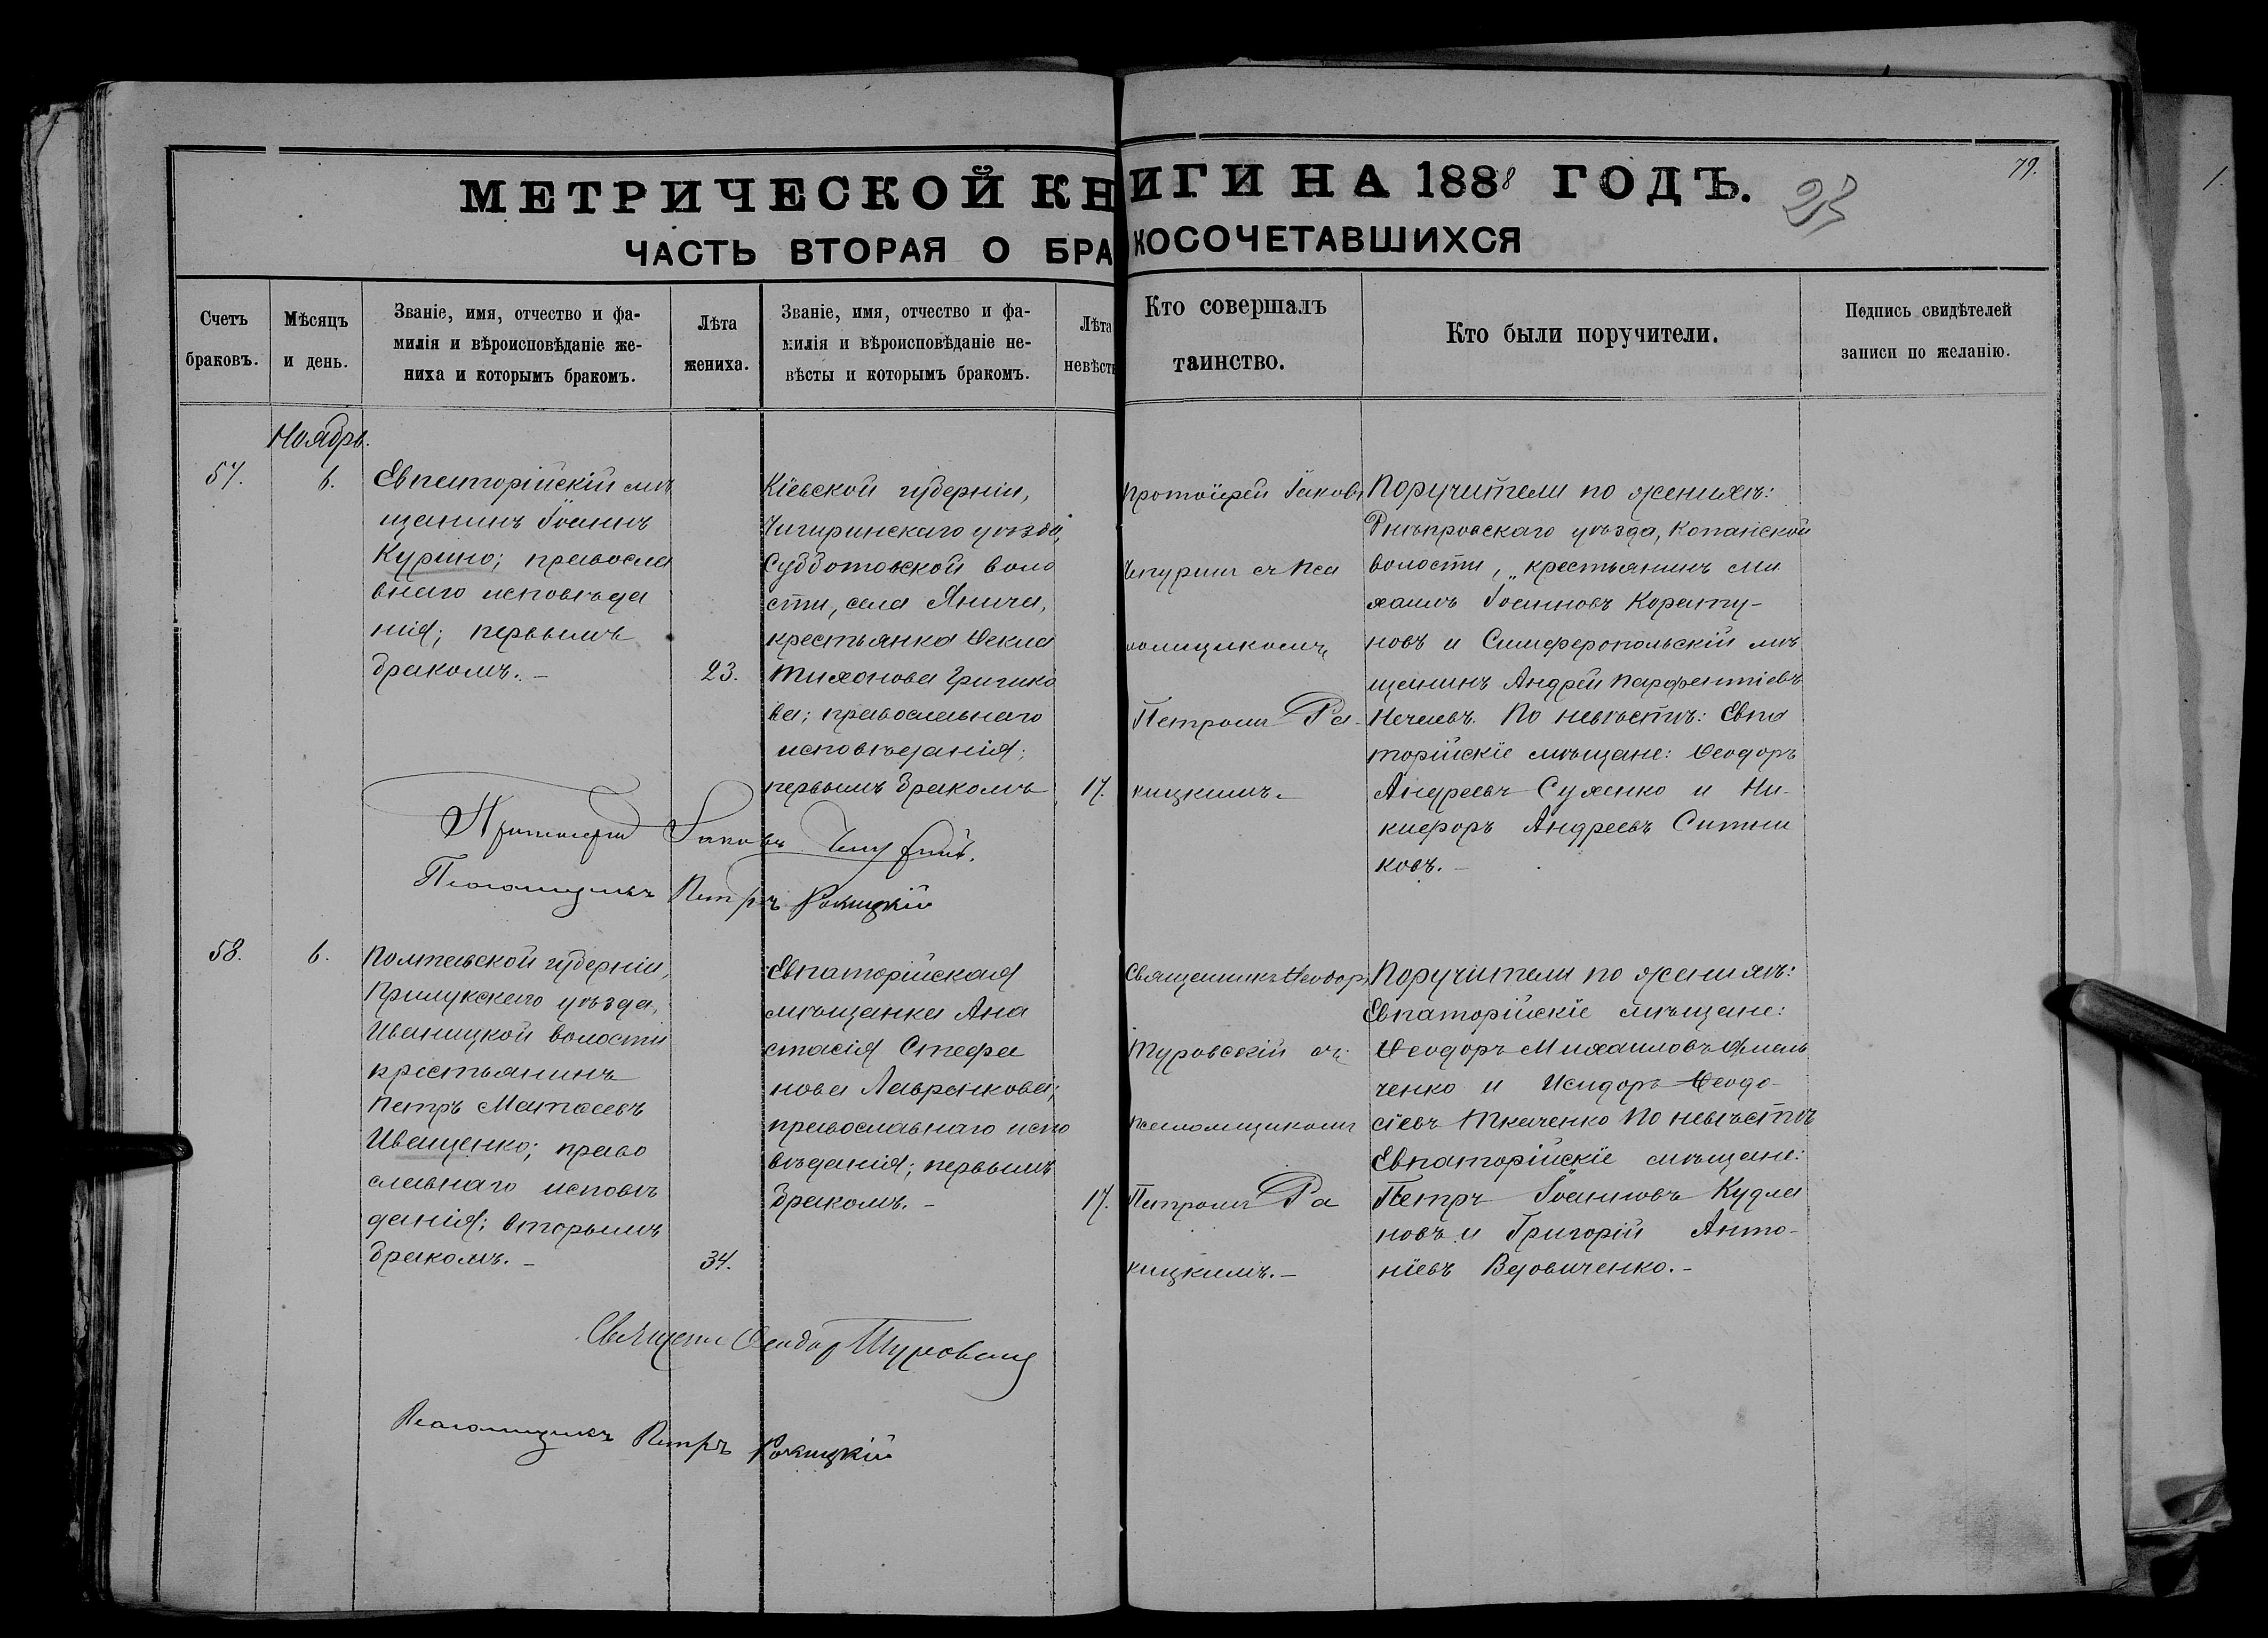 МЕТРИЧЕСКОЙ КНИГИ НА 1888 ГОДЪ.
79.
23
1.
ЧАСТЬ ВТОРАЯ О БРАКОСОЧЕТАВШИХСЯ
Счетъ
браковъ.
Мѣсяцъ
и день.
Званіе, имя, отчество и фа-
милія и вѣроисповѣданіе же-
ниха и которымъ бракомъ.
Лѣта
жениха.
Званіе, имя, отчество и фа-
милія и вѣроисповѣданіе не-
вѣсты и которымъ бракомъ.
Лѣта
невѣсты
Кто совершалъ
таинство.
Кто были поручители.
Подпись свидѣтелей
записи по желанію.
Ноябрь.
57.
6.
Евпаторійскій мѣ
щанинъ Іоаннъ
Курино; правосла
внаго исповѣда
нія; первымъ
бракомъ. –
23.
Кіевской губерніи,
Чигиринскаго уѣзда,
Субботовской воло
сти, села Янича,
крестьянка Ѳекла
Тихонова Григико
ва; православнаго
исповѣданія;
первымъ бракомъ
17.
Протоіерей Іаковъ
Чепуринъ съ Пса
ломщикомъ
Петромъ Ра-
кицкимъ. –
Поручители по женихѣ:
Днѣпровскаго уѣзда, Копанской
волости, крестьянинъ Ми
хаилъ Іоанновъ Корату-
новъ и Симферопольскій мѣ
щанинъ Андрей Парфентіевъ
Нечаевъ. По невѣстѣ: Евпа
торійскіе мѣщане: Ѳеодоръ
Андреевъ Сухенко и Ни-
кифоръ Андреевъ Ситни
ковъ. –
Протоіерей Іаковъ Чепуринъ.
Псаломщикъ Петръ Ракицкій
58.
6.
Полтавской губерніи,
Прилукскаго уѣзда,
Иваницкой волости
крестьянинъ
Петръ Матѳеевъ
Иващенко; право
славнаго исповѣ
данія; вторымъ
бракомъ. –
34.
Евпаторійская
мѣщанка Ана
стасія Стефа
нова Лавренкова;
православнаго испо
вѣданія; первымъ
бракомъ. –
17.
Священникъ Ѳеодоръ
Туровскій съ
псаломщикомъ
Петромъ Ра
кицкимъ. –
Поручители по женихѣ:
Евпаторійскіе мѣщане:
Ѳеодоръ Михаиловъ Омель
ченко и Исидоръ Ѳеодо-
сіевъ Ткаченко По невѣстѣ
Евпаторійскіе мѣщане:
Петръ Іоанновъ Кудла
новъ и Григорій Анто-
ніевъ Вдовиченко. –
Священн Ѳеодоръ Туровскій
Псаломщикъ Петръ Ракицкій